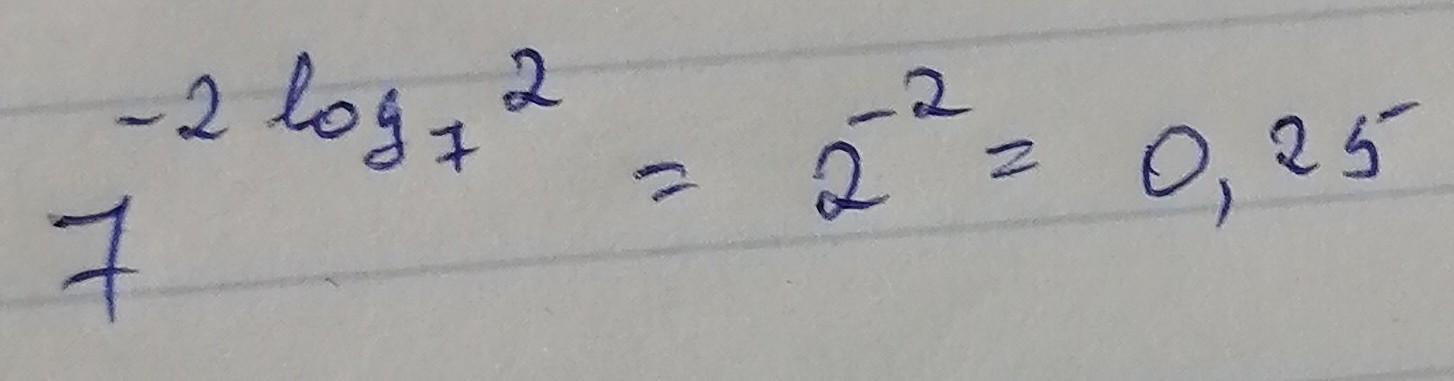 7^{-2 log_7 2} = 2^{-2} = 0,25